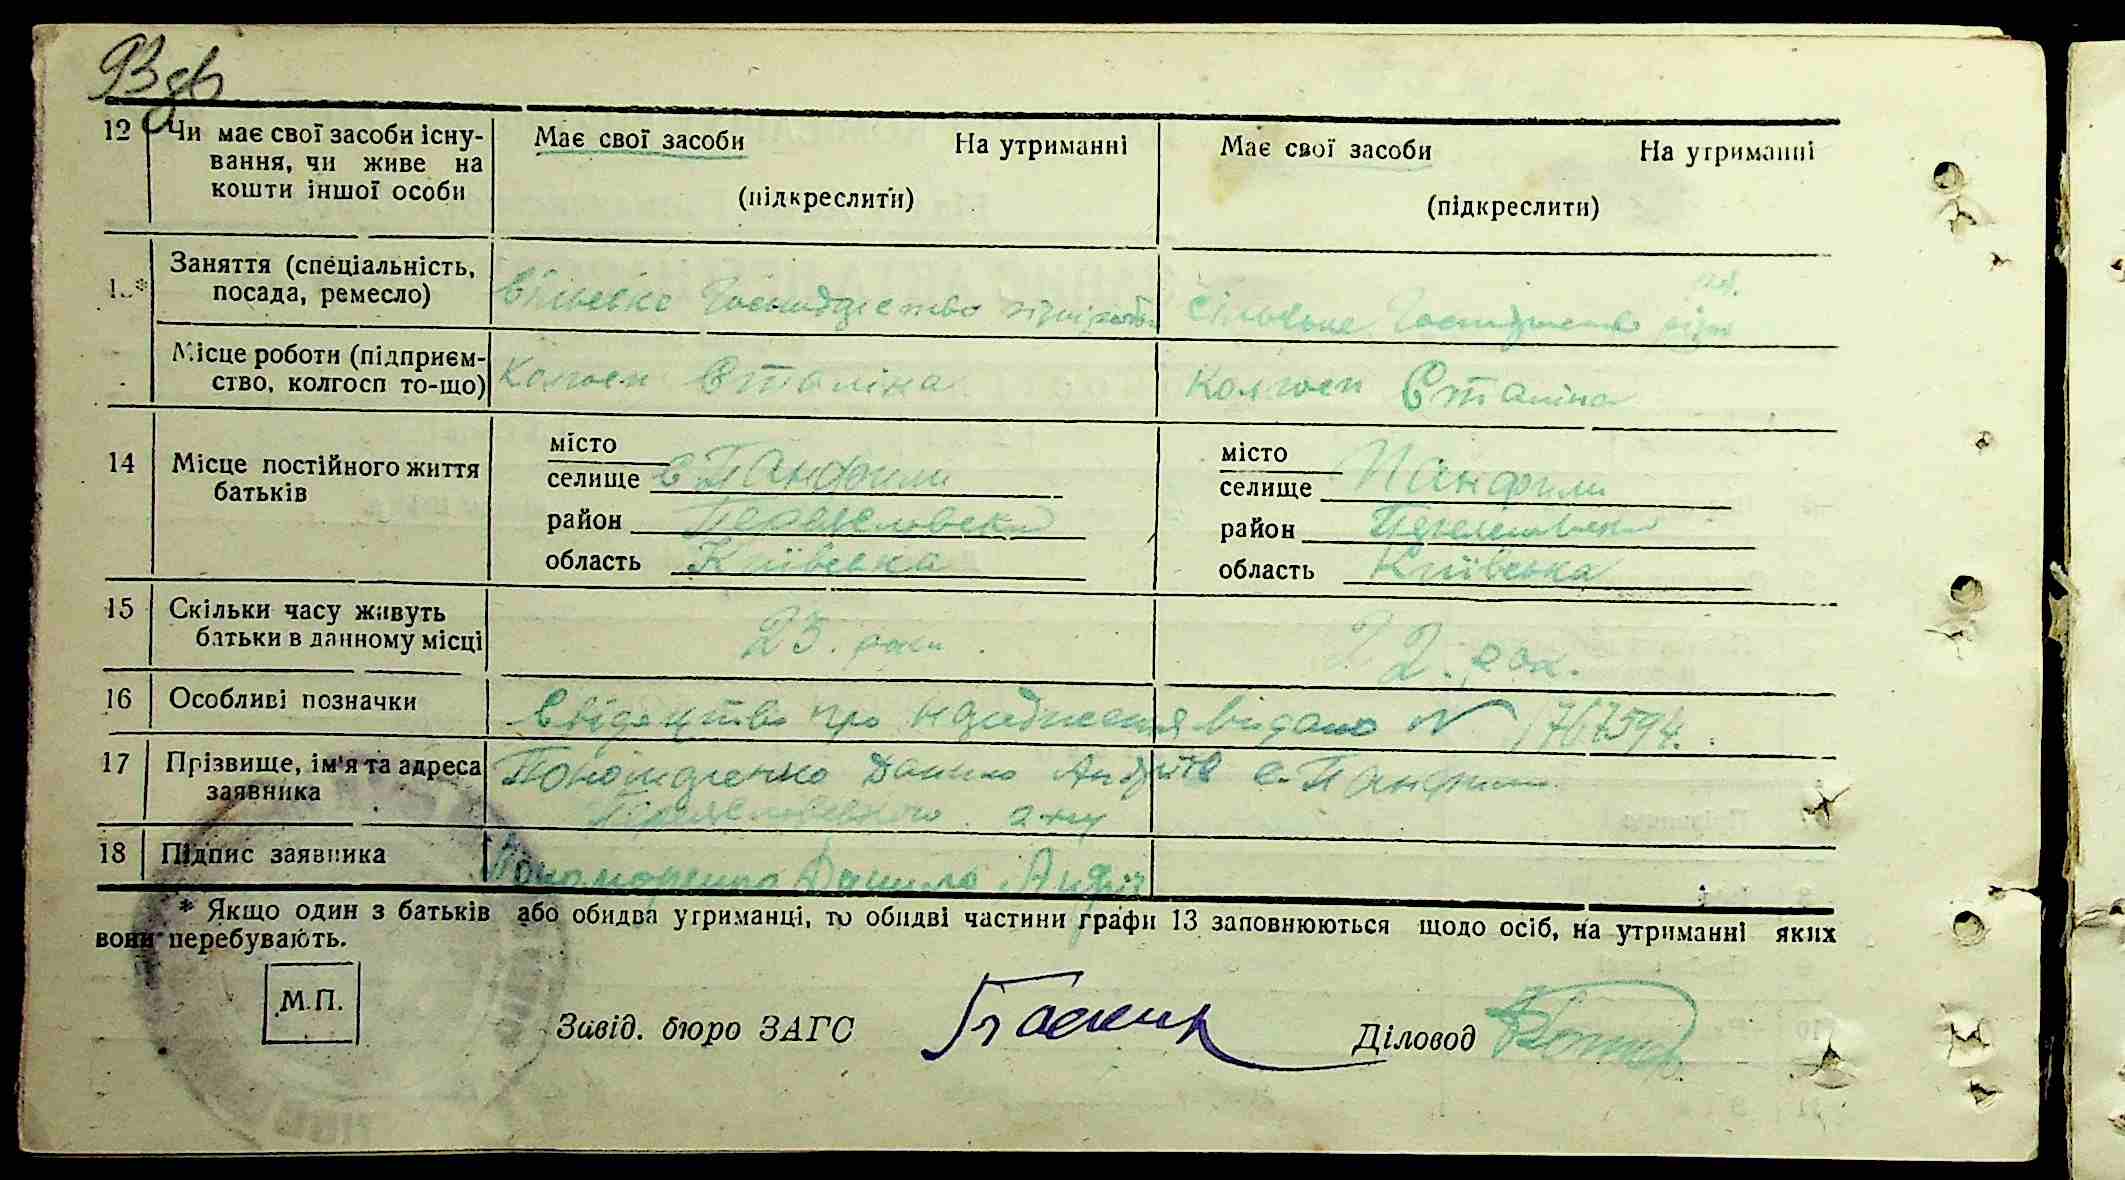 12 Чи має свої засоби існу-
вання, чи живе на
кошти іншої особи
Має свої засоби На утриманні
(підкреслити)
Має свої засоби На утриманні
(підкреслити)
Заняття (спеціальність,
посада, ремесло)
Господарство
Місце роботи (підприєм-
ство, колгосп то-що)
Колгосп Сталіна
Колгосп Сталіна
14 Місце постійного життя
батьків
місто
селище с Панфили
район
область Київська
місто
селище Панфили
район
область Київська
15 Скільки часу живуть
батьки в данному місці
23. роки
22. рок.
16 Особливі позначки
свідоцтво про народження видано № 1767594.
17 Прізвище, ім'я та адреса
заявника
Пономаренко Данило Андріїв с. Панфили
18 Підпис заявника
Пономаренко Данило Андрії
* Якщо один з батьків або обидва утриманці, то обидві частини графи 13 заповнюються щодо осіб, на утриманні яких
вони перебувають.
М.П.
Завід. бюро ЗАГС
Діловод